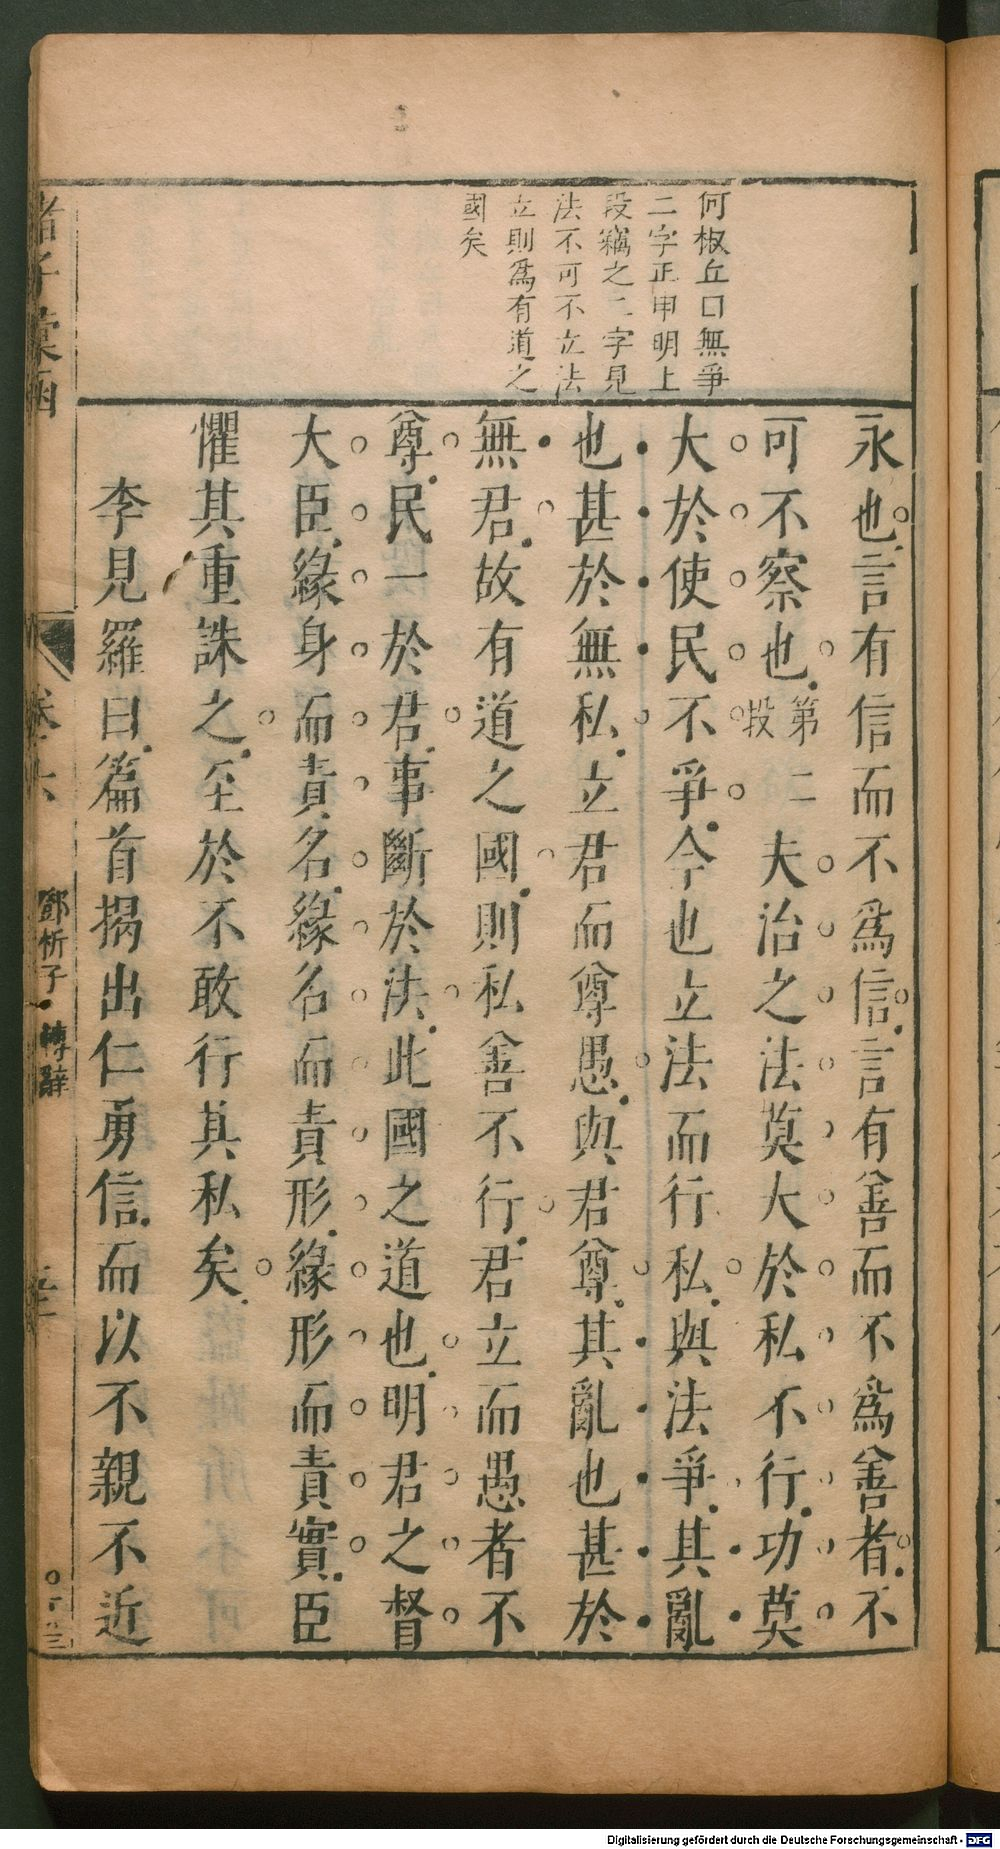 何椒丘曰無爭
二字正申明上
段竊之二字見
法不可不立法
立則爲有道之
國矣
永也言有信而不爲信言有善而不爲善者不
可不察也第二段夫治之法莫大於私不行功莫
大於使民不爭今也立法而行私與法爭其亂
也甚於無私立君而尊愚與君尊其亂也甚於
無君故有道之國則私善不行君立而愚者不
尊民一於君事斷於法此國之道也明君之督
大臣緣身而責名緣名而責形緣形而責實臣
懼其重誅之至於不敢行其私矣
李見羅曰篇首揭出仁勇信而以不親不近
諸子彙函
卷六
鄧析子 轉辭
Digitalisierung gefördert durch die Deutsche Forschungsgemeinschaft - DFG